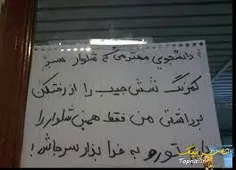 دانشجوی محترمی که شلوار سبز
کمرنگ شش جیب را از رختکن
برداشتی من فقط همین شلوار را
تورو به خدا بزار سر جاش!
Topnaz.com